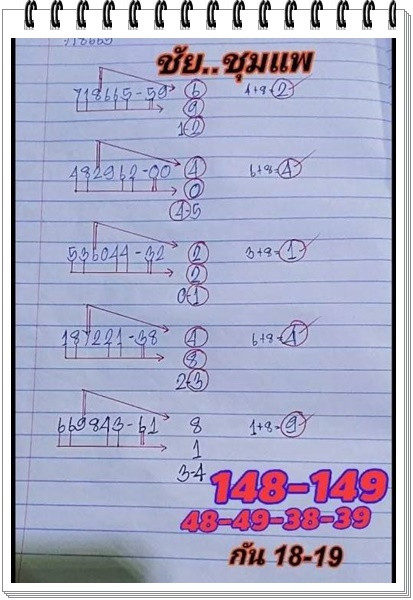 718665
ชัย..ชุมแพ
718665-59 6 4+8=2
9
1-2
482962-00 4 6+8=4
0
4-5
536044-32 2 3+8=1
2
0-1
187221-38 4 6+8=4
8
2-3
669843-61 8 1+8=9
1
3-4
148-149
48-49-38-39
กัน 18-19